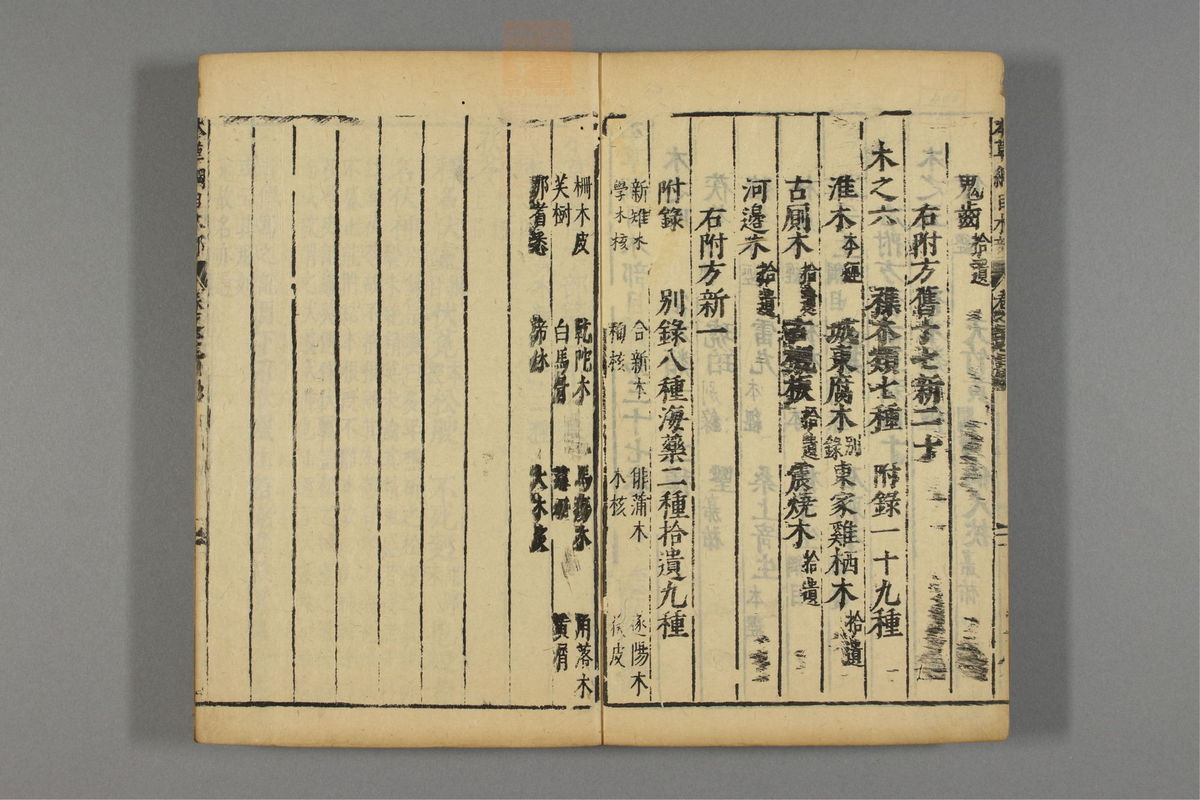 鬼齒拾遺
右附方舊十七新二十
木之六 雜木類七種 附錄一十九種
淮木本經 城東腐木別錄 東家雞栖木拾遺
古厠木拾遺 古櫬板拾遺 震燒木拾遺
河邊木拾遺
右附方新一
附錄 別錄八種海藥二種拾遺九種
新雉木 合新木 俳蒲木 遂陽木
學木核 栒核 木核 荻皮
柵木皮 乾陀木 馬瘍木 角落木
芙樹 白馬骨 黃屑
那耆悉 大木皮